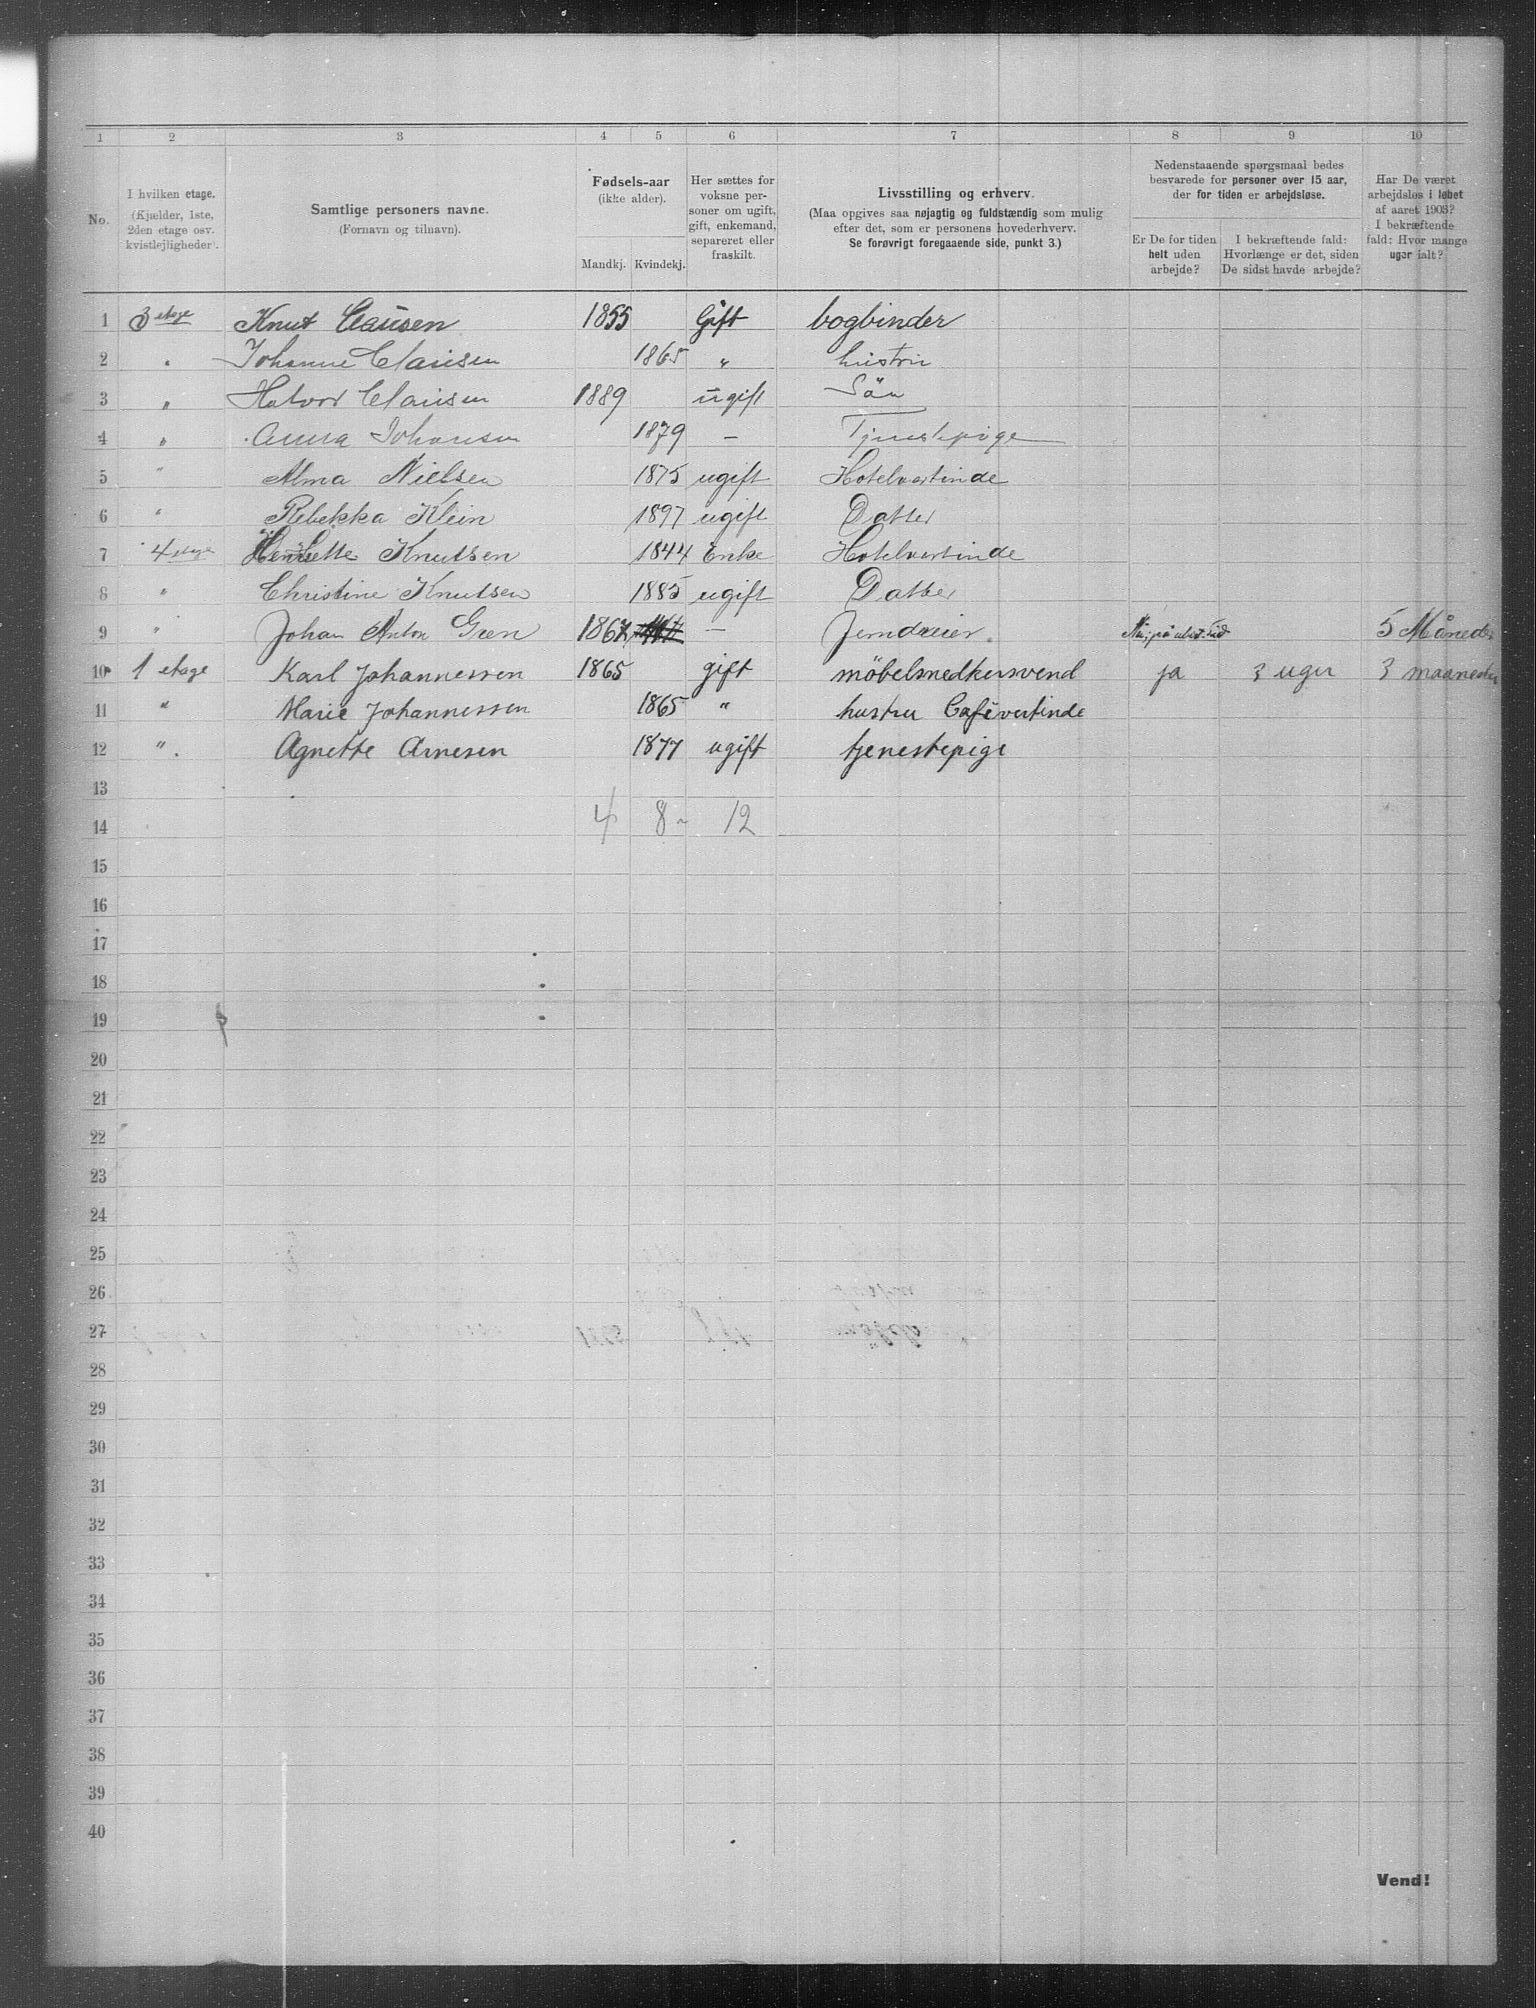 1 2 3 4 5 6 7 8 9 10
No.
I hvilken etage.
(Kjælder, 1ste,
2den etage osv.
kvistlejligheder).
Samtlige personers navne.
(Fornavn og tilnavn).
Fødsels-aar
(ikke alder).
Mandkj. Kvindekj.
Her sættes for
voksne per-
soner om ugift,
gift, enkemand,
separeret eller
fraskilt.
Livsstilling og erhverv.
(Maa opgives saa nøjagtig og fuldstændig som mulig
efter det, som er personens hovederhverv.
Se forøvrigt foregaaende side, punkt 3.)
Nedenstaaende spørgsmaal bedes
besvarede for personer over 15 aar,
der for tiden er arbejdsløse.
Er De for tiden
helt uden
arbejde?
I bekræftende fald:
Hvorlænge er det, siden
De sidst havde arbejde?
Har De været
arbejdsløs i løbet
af aaret 1903?
I bekræftende
fald: Hvor mange
uger ialt?
1 3 etage Knut Clausen 1855 Gift bogbinder
2 " Johanne Clausen 1865 " hustru
3 " Halvor Clausen 1889 ugift Sön
4 " Anna Johansen 1879 — Tjenestepige
5 " Alma Nielsen 1875 ugift Hotelvertinde
6 " Rebekka Klein 1897 ugift Datter
7 4 etage Henriette Knutsen 1844 Enke Hotelvertinde
8 " Christine Knutsen 1885 ugift Datter
9 " Johan Anton Gren 1867 — Jerndreier 5 Måneder
10 1 etage Karl Johannessen 1865 gift möbelsnedkersvend ja 3 uger 3 maaneder
11 " Marie Johannessen 1865 " hustru Cafévertinde
12 " Agnette Arnesen 1877 ugift tjenestepige
13
14 4 8 - 12
15
16
17
18
19
20
21
22
23
24
25
26
27
28
29
30
31
32
33
34
35
36
37
38
39
40
Vend!